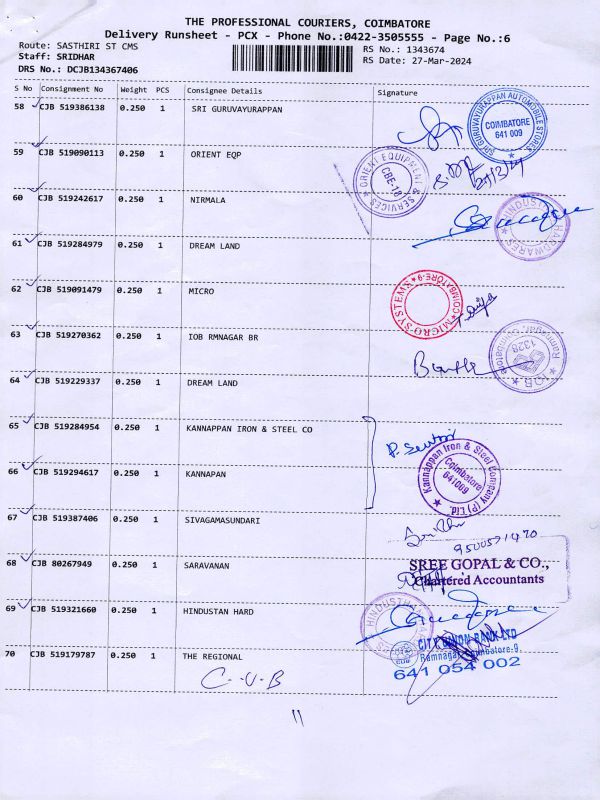 THE PROFESSIONAL COURIERS, COIMBATORE
Delivery Runsheet - PCX - Phone No.:0422-3505555 - Page No.:6
Route: SASTHIRI ST CMS
RS No.: 1343674
Staff: SRIDHAR
RS Date: 27-Mar-2024
DRS No.: DCJB134367406
S No Consignment No Weight PCS Consignee Details Signature
58 CJB 519386138 0.250 1 SRI GURUVAYURAPPAN
SRI GURUVAYURAPPAN AUTOMOBILE STORES
COIMBATORE
641 009
59 CJB 519090113 0.250 1 ORIENT EQP
ORIENT EQUIPMENT & SERVICES
CBE-18
60 CJB 519242617 0.250 1 NIRMALA
HINDUSTHAN HARDWARES
61 CJB 519284979 0.250 1 DREAM LAND
62 CJB 519091479 0.250 1 MICRO
MICRO SYSTEMS
COIMBATORE-9
63 CJB 519270362 0.250 1 IOB RMNAGAR BR
IOB
1328
Ramnagar Coimbatore
64 CJB 519229337 0.250 1 DREAM LAND
65 CJB 519284954 0.250 1 KANNAPPAN IRON & STEEL CO
Kannappan Iron & Steel Company (P) Ltd.
Coimbatore
641009
66 CJB 519294617 0.250 1 KANNAPAN
67 CJB 519387406 0.250 1 SIVAGAMASUNDARI
9500571470
68 CJB 80267949 0.250 1 SARAVANAN
SREE GOPAL & CO.,
Chartered Accountants
69 CJB 519321660 0.250 1 HINDUSTAN HARD
HINDUSTHAN
70 CJB 519179787 0.250 1 THE REGIONAL
CITY UNION BANK LTD
Ramnagar, Coimbatore-9
641 054 002
C.U.B
11